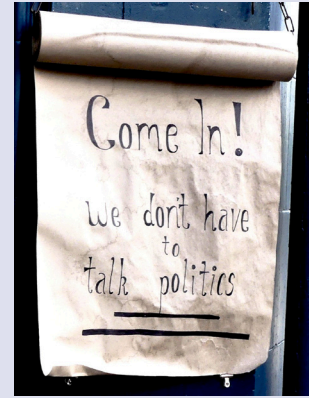 Come In!
we don't have
to
talk politics